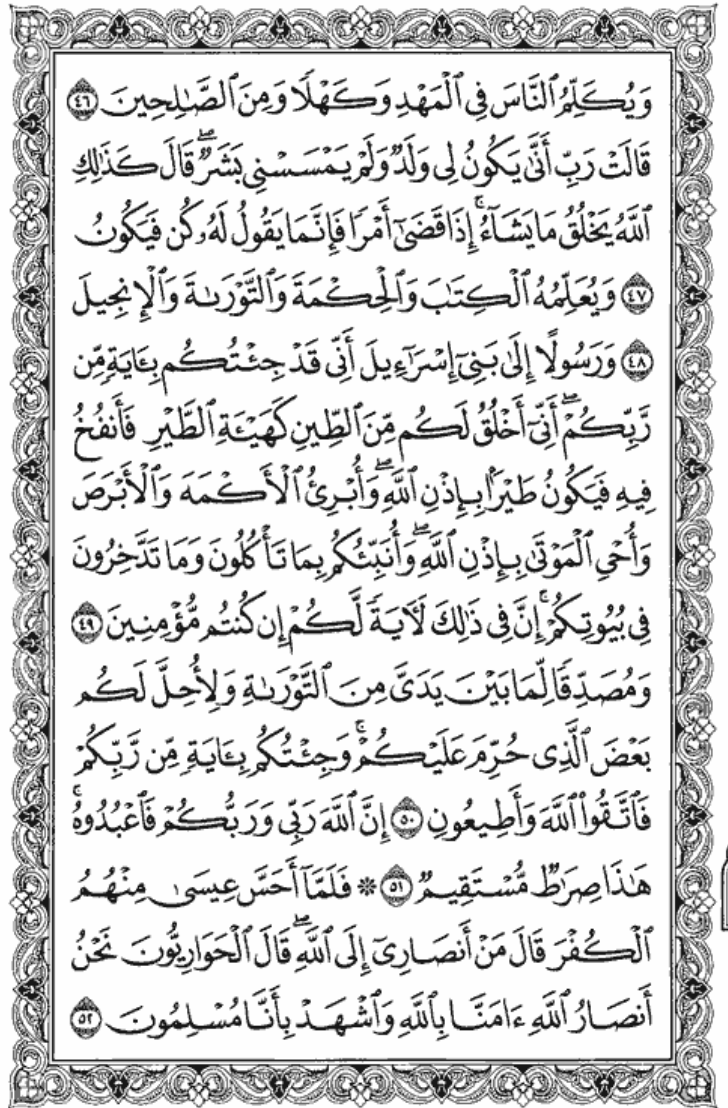 وَيُكَلِّمُ ٱلنَّاسَ فِي ٱلْمَهْدِ وَكَهْلًا وَمِنَ ٱلصَّـٰلِحِينَ ٤٦
قَالَتْ رَبِّ أَنَّىٰ يَكُونُ لِى وَلَدٌ وَلَمْ يَمْسَسْنِى بَشَرٌ ۖ قَالَ كَذَٰلِكِ
ٱللَّهُ يَخْلُقُ مَا يَشَآءُ ۚ إِذَا قَضَىٰٓ أَمْرًا فَإِنَّمَا يَقُولُ لَهُۥ كُن فَيَكُونُ
٤٧ وَيُعَلِّمُهُ ٱلْكِتَـٰبَ وَٱلْحِكْمَةَ وَٱلتَّوْرَىٰةَ وَٱلْإِنجِيلَ
٤٨ وَرَسُولًا إِلَىٰ بَنِىٓ إِسْرَٰٓءِيلَ أَنِّى قَدْ جِئْتُكُم بِـَٔايَةٍ مِّن
رَّبِّكُمْ ۖ أَنِّىٓ أَخْلُقُ لَكُم مِّنَ ٱلطِّينِ كَهَيْـَٔةِ ٱلطَّيْرِ فَأَنفُخُ
فِيهِ فَيَكُونُ طَيْرًۢا بِإِذْنِ ٱللَّهِ ۖ وَأُبْرِئُ ٱلْأَكْمَهَ وَٱلْأَبْرَصَ
وَأُحْىِ ٱلْمَوْتَىٰ بِإِذْنِ ٱللَّهِ ۖ وَأُنَبِّئُكُم بِمَا تَأْكُلُونَ وَمَا تَدَّخِرُونَ
فِى بُيُوتِكُمْ ۚ إِنَّ فِى ذَٰلِكَ لَـَٔايَةً لَّكُمْ إِن كُنتُم مُّؤْمِنِينَ ٤٩
وَمُصَدِّقًا لِّمَا بَيْنَ يَدَىَّ مِنَ ٱلتَّوْرَىٰةِ وَلِأُحِلَّ لَكُم
بَعْضَ ٱلَّذِى حُرِّمَ عَلَيْكُمْ ۚ وَجِئْتُكُم بِـَٔايَةٍ مِّن رَّبِّكُمْ
فَٱتَّقُوا۟ ٱللَّهَ وَأَطِيعُونِ ٥٠ إِنَّ ٱللَّهَ رَبِّى وَرَبُّكُمْ فَٱعْبُدُوهُ ۗ
هَـٰذَا صِرَٰطٌ مُّسْتَقِيمٌ ٥١ ۞ فَلَمَّآ أَحَسَّ عِيسَىٰ مِنْهُمُ
ٱلْكُفْرَ قَالَ مَنْ أَنصَارِىٓ إِلَى ٱللَّهِ ۖ قَالَ ٱلْحَوَارِيُّونَ نَحْنُ
أَنصَارُ ٱللَّهِ ءَامَنَّا بِٱللَّهِ وَٱشْهَدْ بِأَنَّا مُسْلِمُونَ ٥٢